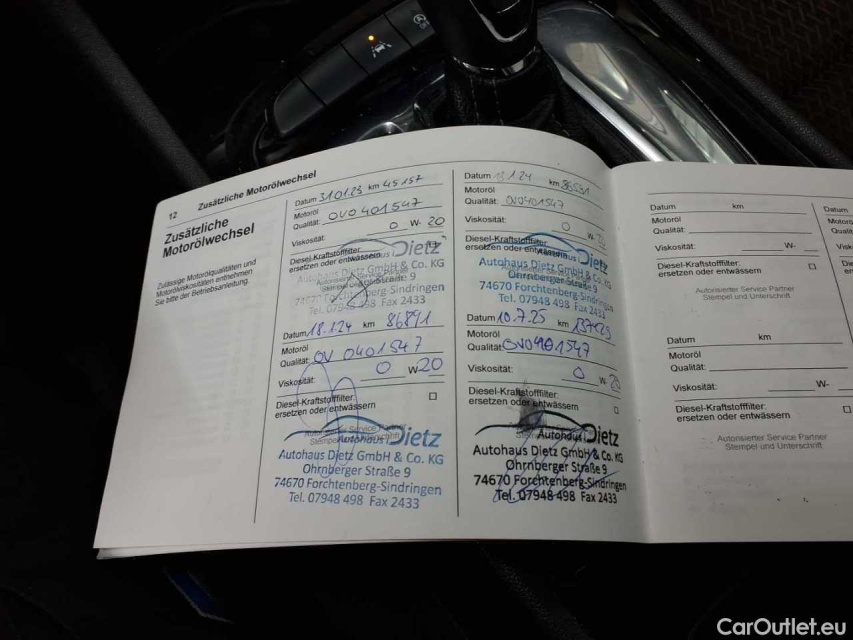 12 Zusätzliche Motorölwechsel
Zusätzliche
Motorölwechsel
Zulässige Motorölqualitäten und
Motorölviskositäten entnehmen
Sie bitte der Betriebsanleitung.
Datum 31.01.23 km 45157
Motoröl
Qualität: OVO401547
Viskosität: 0 W- 20
Diesel-Kraftstofffilter:
ersetzen oder entwässern
Autohaus Dietz
Autohaus Dietz GmbH & Co. KG
Ohrnberger Straße 9
74670 Forchtenberg-Sindringen
Tel. 07948 498 Fax 2433
Datum 18.1.24 km 86891
Motoröl
Qualität: OV 0401547
Viskosität: 0 W- 20
Diesel-Kraftstofffilter:
ersetzen oder entwässern
Autorisierter Service Partner
Autohaus Dietz
Autohaus Dietz GmbH & Co. KG
Ohrnberger Straße 9
74670 Forchtenberg-Sindringen
Tel. 07948 498 Fax 2433
Datum 1.24 km
Motoröl
Qualität: OVO401547
Viskosität: 0 W-
Diesel-Kraftstofffilter:
ersetzen oder entwässern
Autohaus Dietz
Autohaus Dietz GmbH & Co. KG
Ohrnberger Straße 9
74670 Forchtenberg-Sindringen
Tel. 07948 498 Fax 2433
Datum 10.7.25 km
Motoröl
Qualität: OVO401547
Viskosität: 0 W- 20
Diesel-Kraftstofffilter:
ersetzen oder entwässern
Autohaus Dietz
Autohaus Dietz GmbH & Co. KG
Ohrnberger Straße 9
74670 Forchtenberg-Sindringen
Tel. 07948 498 Fax 2433
Datum km
Motoröl
Qualität:
Viskosität: W-
Diesel-Kraftstofffilter:
ersetzen oder entwässern
Autorisierter Service Partner
Stempel und Unterschrift
Datum km
Motoröl
Qualität:
Viskosität: W-
Diesel-Kraftstofffilter:
ersetzen oder entwässern
Autorisierter Service Partner
Stempel und Unterschrift
Datum
CarOutlet.eu